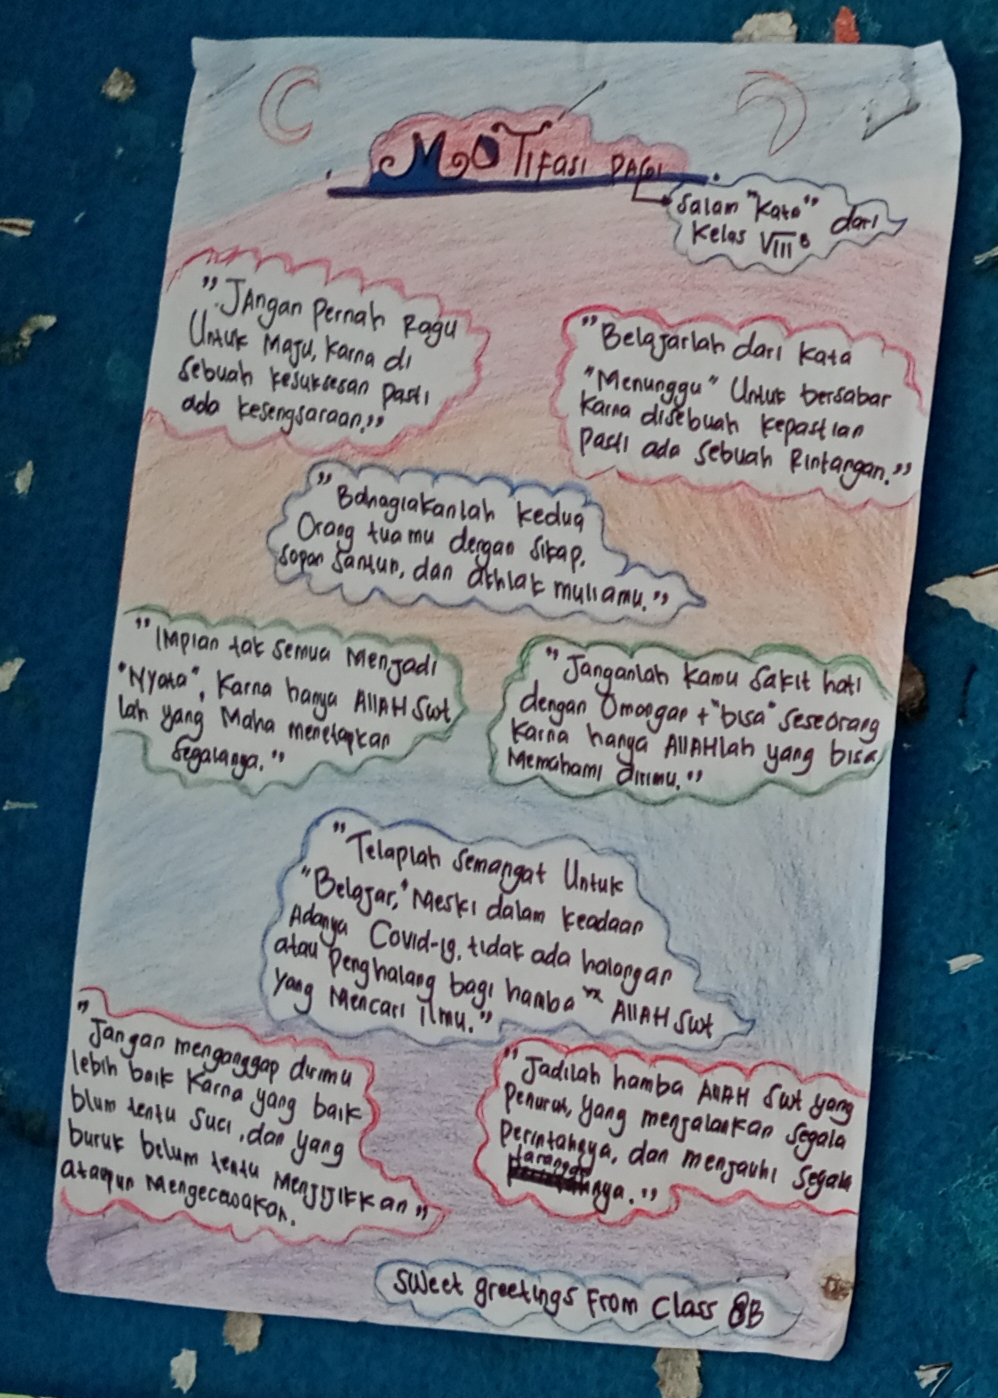 MOTIFasi PAGI
Salam "Kata" dari
Kelas VIII B
"JAngan Pernah Ragu
Untuk Maju, Karna di
Sebuah Kesuksesan Pasti
ada Kesengsaraan."
"Belajarlah dari Kata
"Menunggu" Untuk bersabar
Karna disebuah Kepastian
Pasti ada Sebuah Rintangan."
"Bahagiakanlah Kedua
Orang tuamu dengan Sikap,
Sopan Santun, dan akhlak muliamu."
"IMpian tak Semua Menjadi
"NYata", Karna hanya AllAH Swt
lah yang Maha menetapkan
Segalanya."
"Janganlah Kamu Sakit hati
dengan Omongan + "bisa" Seseorang
Karna hanya AllAHlah yang bisa
Memahami dirimu."
"Tetaplah Semangat Untuk
"Belajar," Meski dalam Keadaan
Adanya Covid-19, tidak ada halangan
atau Penghalang bagi hamba" AllAH Swt
Yang Mencari Ilmu."
"Jangan menganggap dirimu
lebih baik Karna yang baik
blum tentu Suci, dan yang
buruk belum tentu Menjijikkan"
ataupun Mengecewakan.
"Jadilah hamba AllAH Swt yang
Penurut, Yang menjalankan Segala
Perintahnya, dan menjauhi Segala
larangannya."
Sweet greetings From Class 8B